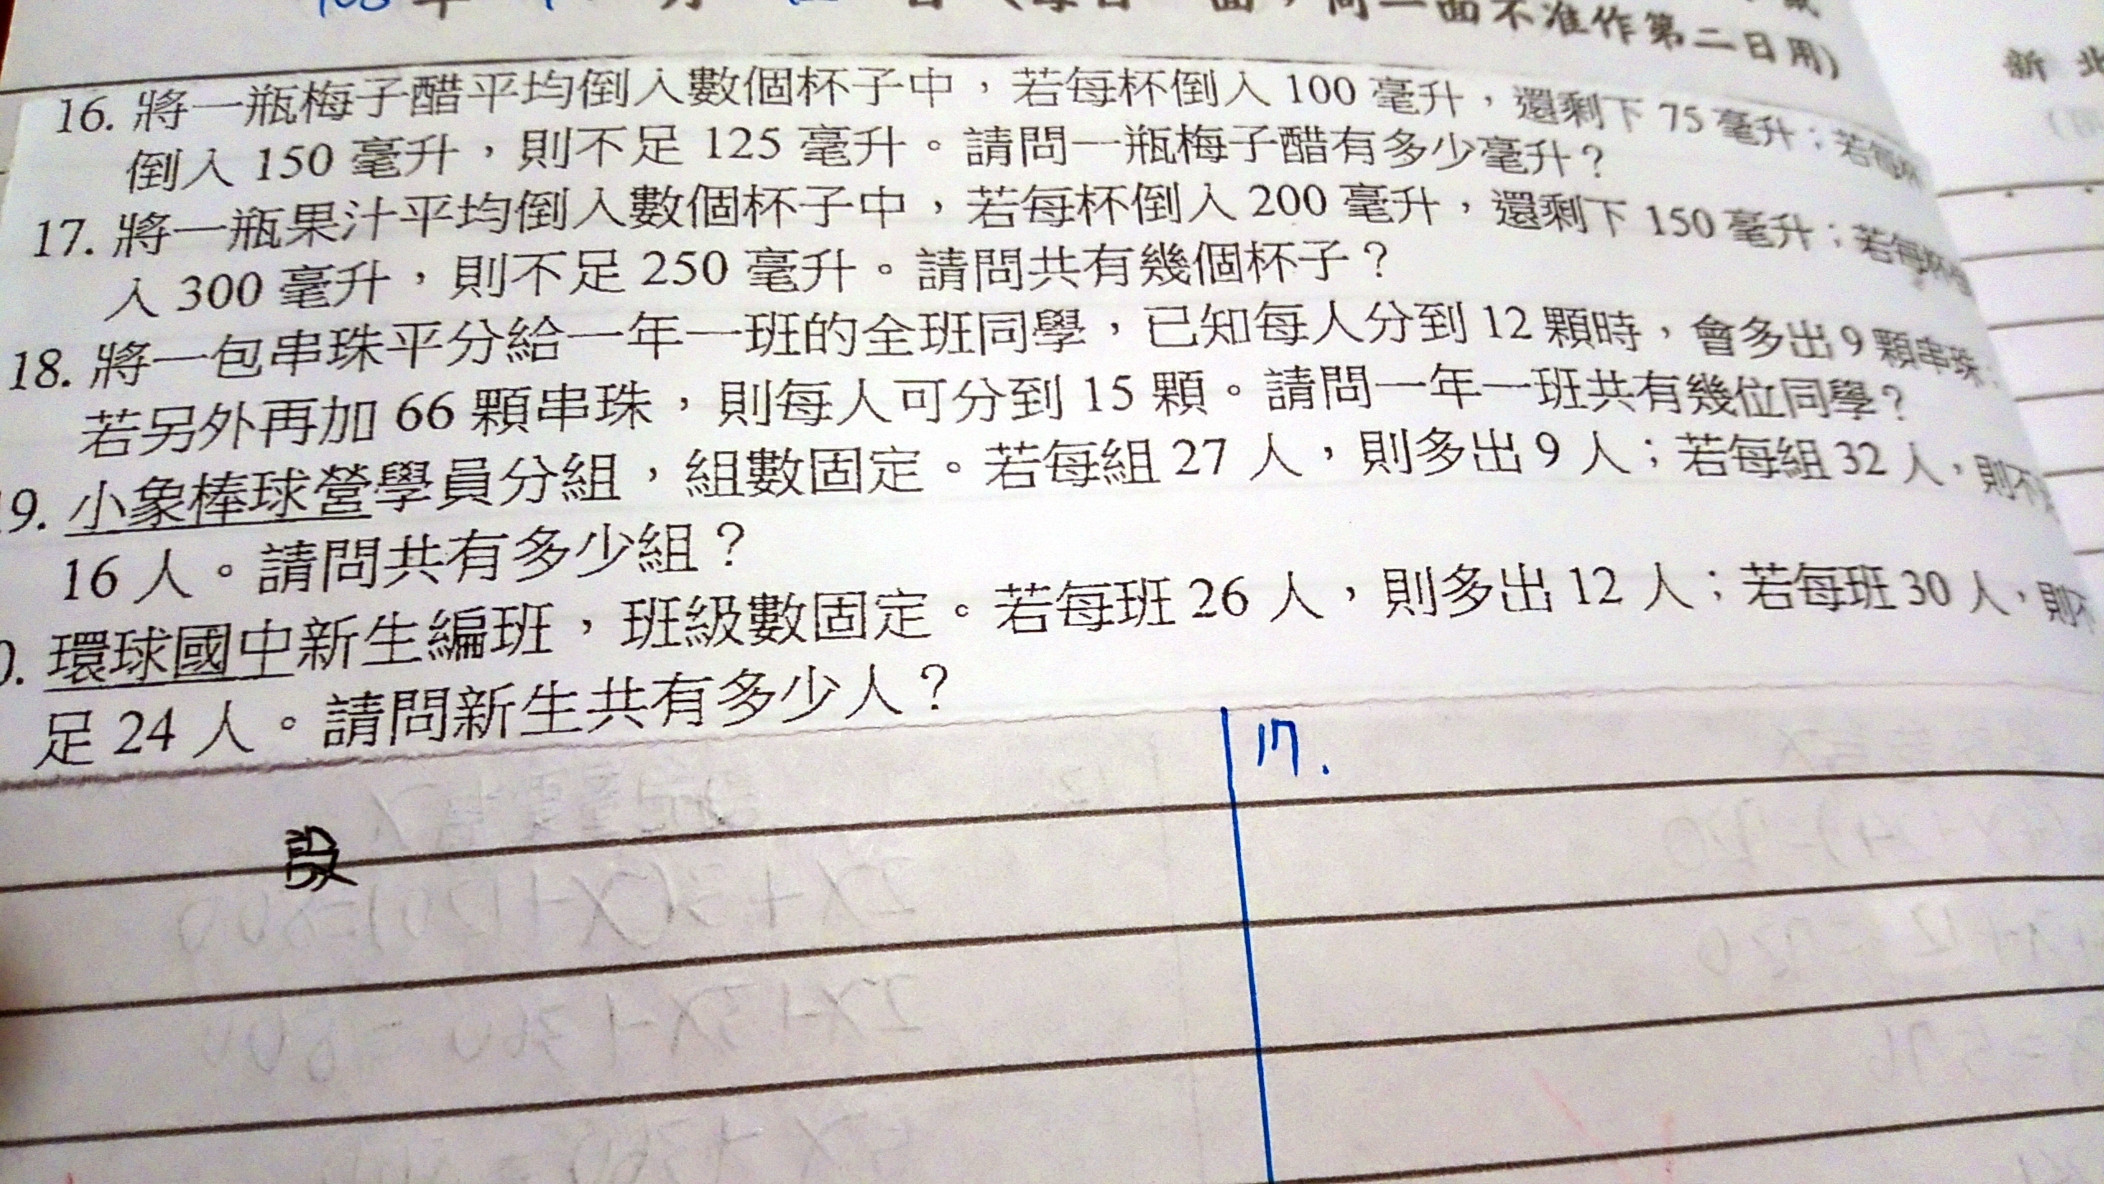 年 月 日 面，同一面不准作第二日用)
新 北
16. 將一瓶梅子醋平均倒入數個杯子中，若每杯倒入 100 毫升，還剩下 75 毫升；若每杯
倒入 150 毫升，則不足 125 毫升。請問一瓶梅子醋有多少毫升？
17. 將一瓶果汁平均倒入數個杯子中，若每杯倒入 200 毫升，還剩下 150 毫升；若每杯倒
入 300 毫升，則不足 250 毫升。請問共有幾個杯子？
18. 將一包串珠平分給一年一班的全班同學，已知每人分到 12 顆時，會多出 9 顆串珠；
若另外再加 66 顆串珠，則每人可分到 15 顆。請問一年一班共有幾位同學？
9. 小象棒球營學員分組，組數固定。若每組 27 人，則多出 9 人；若每組 32 人，則不
16 人。請問共有多少組？
. 環球國中新生編班，班級數固定。若每班 26 人，則多出 12 人；若每班 30 人，則不
足 24 人。請問新生共有多少人？
17.
設